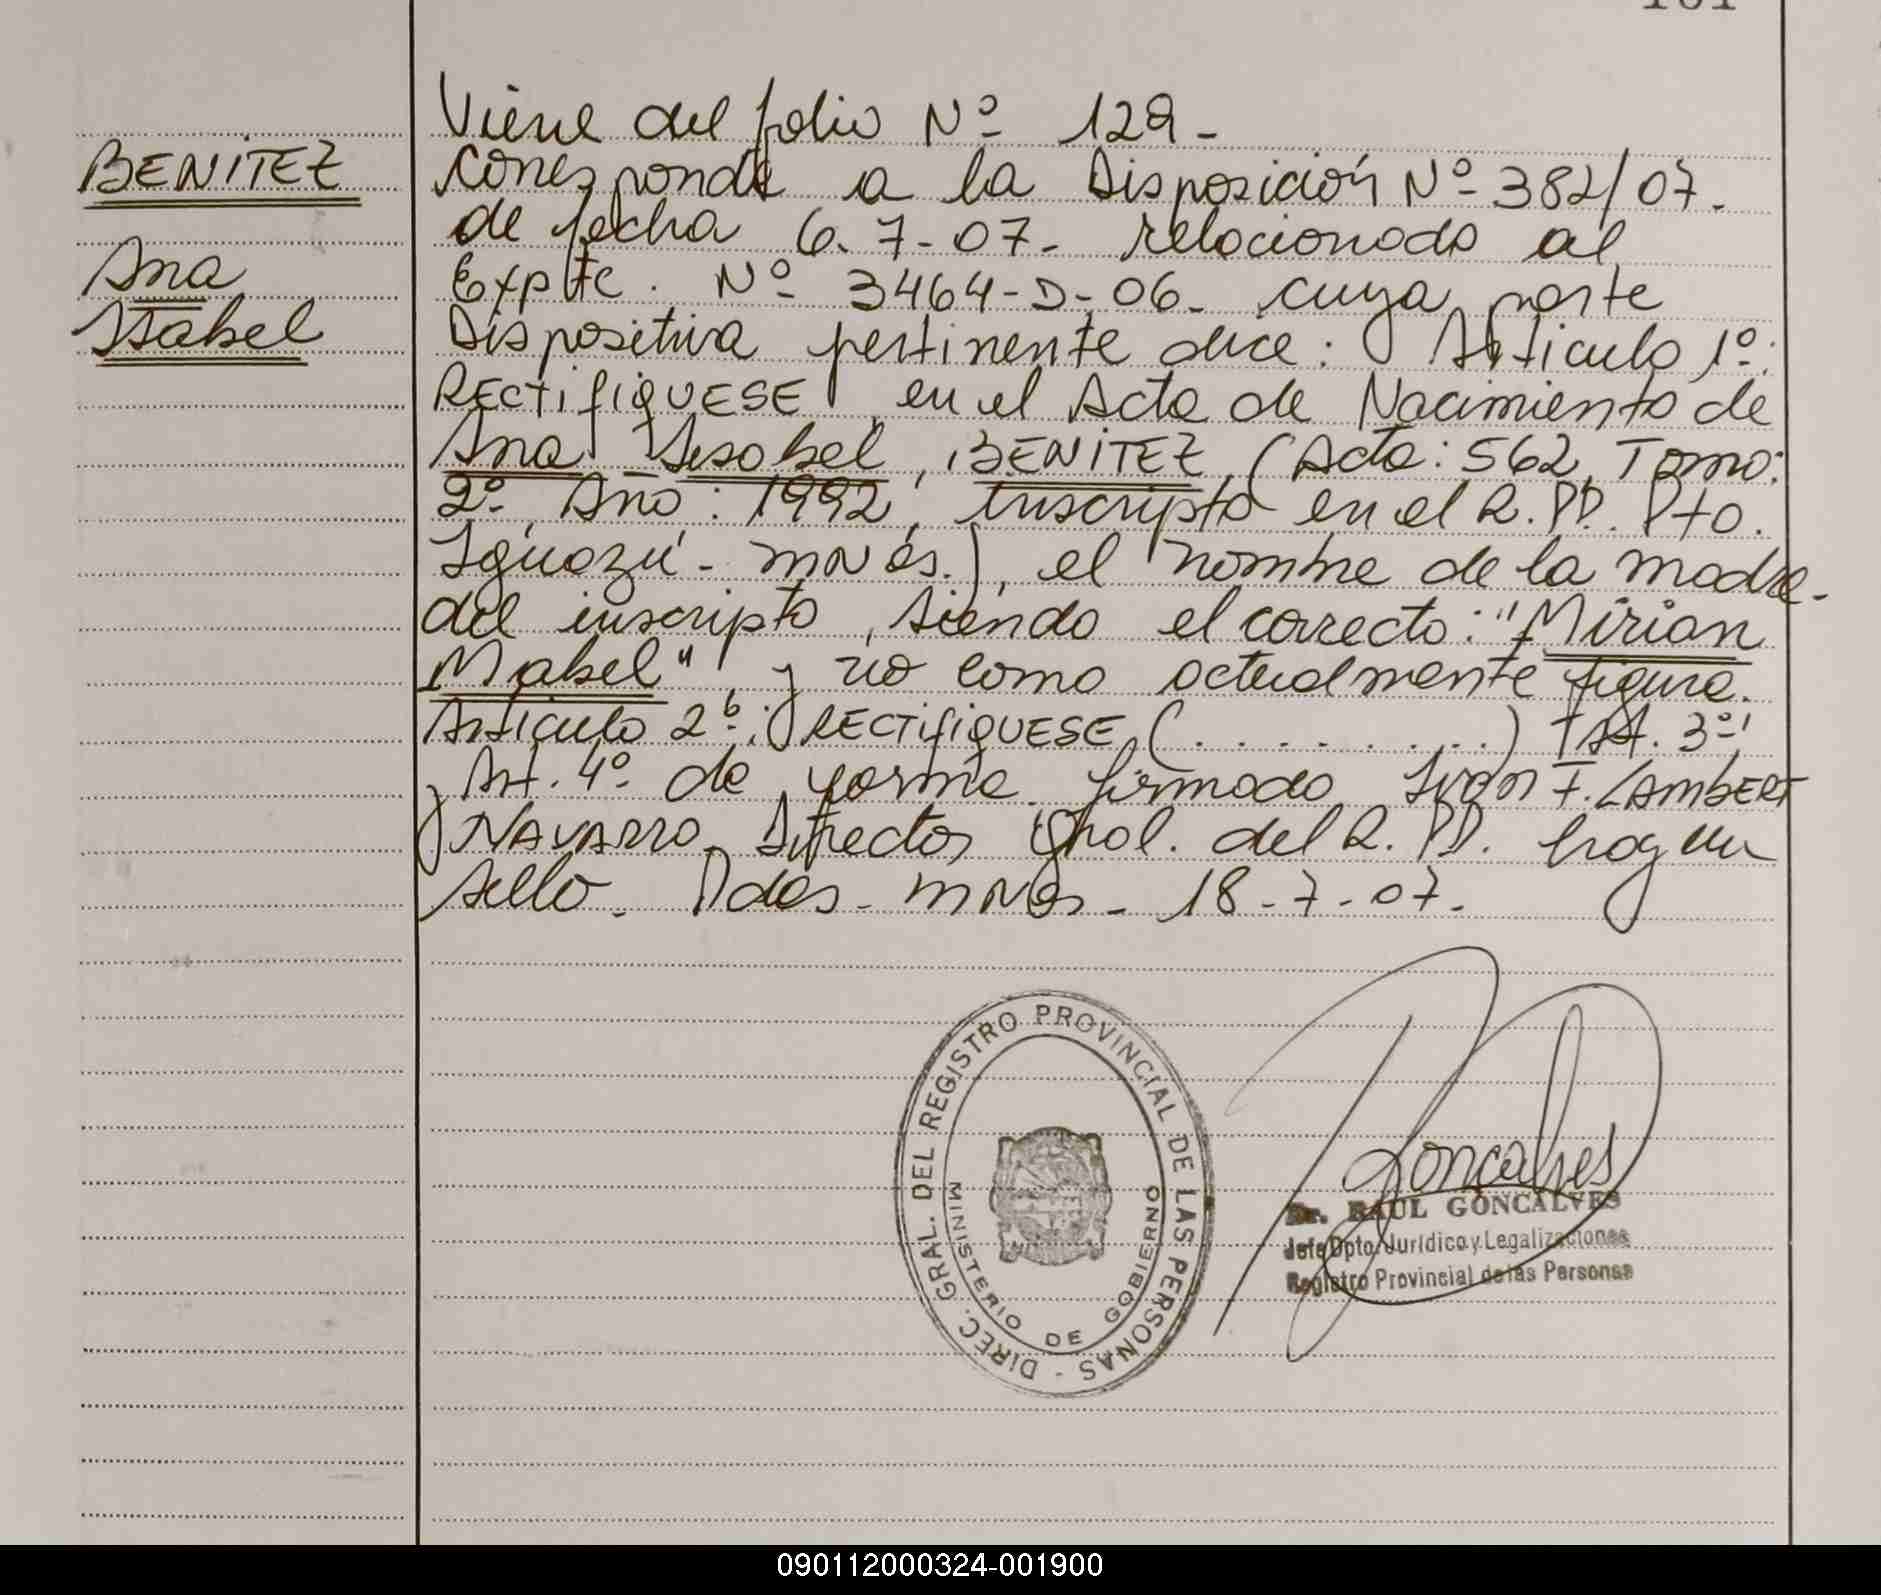 BENITEZ
Ana
Isabel
Viene del folio Nº 129-
Corresponde a la Disposición Nº 382/07.
de fecha 6-7-07- relacionado al
Expte. Nº 3464-D-06- cuya parte
Dispositiva pertinente dice: Artículo 1º:
RECTIFIQUESE en el Acta de Nacimiento de
Ana Isabel, BENITEZ, (Acta: 562, Tomo:
2º, Año: 1992, Inscripta en el R.PP. Pto.
Iguazú - mnes.), el nombre de la madre-
del inscripto, siendo el correcto: "Mirian
Mabel" y no como actualmente figura.
Artículo 2º: RECTIFIQUESE (.........) Art. 3º,
y Art. 4º de forma firmado Ivan F. LAMBERT
NAVARRO. Director Gral. del R.PP. hay un
sello. Pdas - mnes - 18-7-07.
DIREC. GRAL. DEL REGISTRO PROVINCIAL DE LAS PERSONAS -
MINISTERIO DE GOBIERNO
Goncalves
Dr. RAUL GONCALVES
Jefe Dpto. Jurídico y Legalizaciones
Registro Provincial de las Personas
090112000324-001900